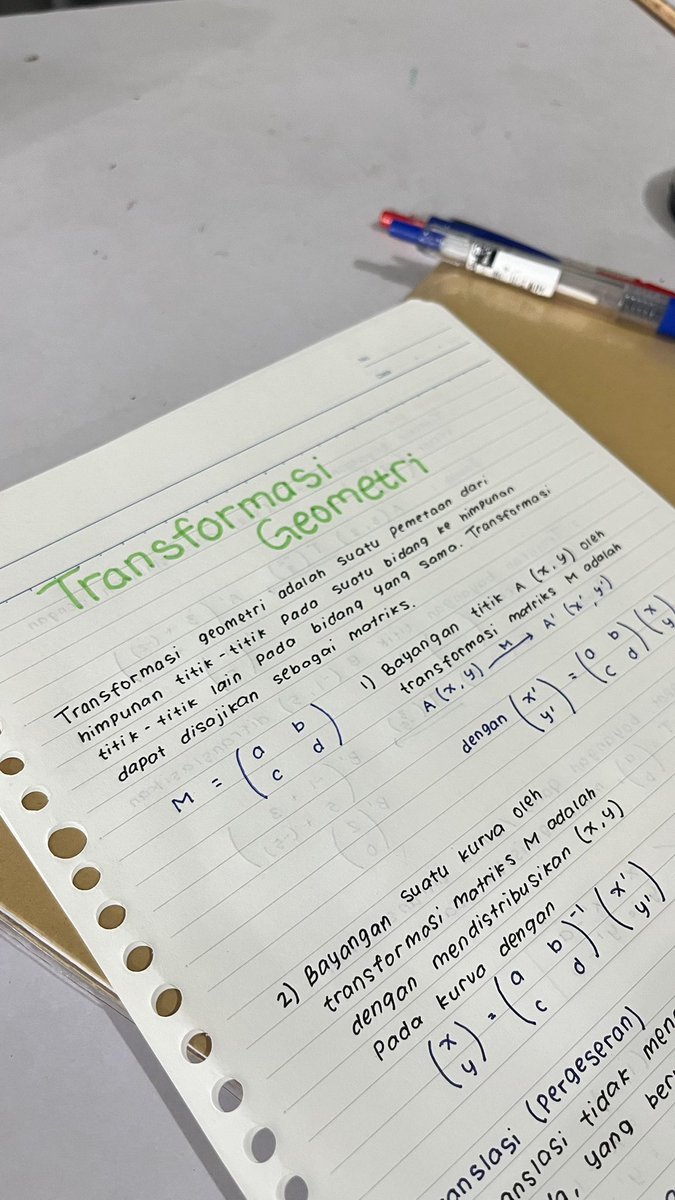 Transformasi
Geometri
Transformasi geometri adalah suatu pemetaan dari
himpunan titik-titik pada suatu bidang ke himpunan
titik-titik lain pada bidang yang sama. Transformasi
dapat disajikan sebagai matriks.
M = (a b
c d)
1) Bayangan titik A (x, y) oleh
transformasi matriks M adalah
A (x, y) M→ A' (x', y')
dengan (x' y') = (a b c d) (x y
2) Bayangan suatu kurva oleh
transformasi matriks M adalah
dengan mendistribusikan (x, y)
Pada kurva dengan
(x y) = (a b c d)⁻¹ (x' y')
anslasi (pergeseran)
anslasi tidak men
yang ber